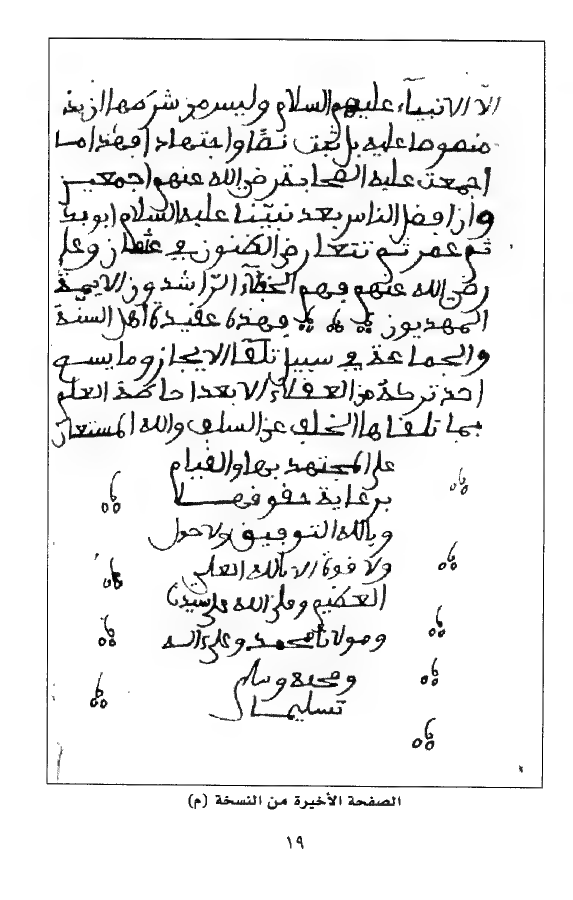 إلا الأنبياء عليهم السلام وليس من شرطها أن يكون
منصوصا عليه بل ثبت نصا واجتهادا فهذا ما
أجمعت عليه الصحابة رضي الله عنهم أجمعين
وأن أفضل الناس بعد نبينا عليه السلام أبو بكر
ثم عمر ثم تتعارض الظنون في عثمان وعلي
رضي الله عنهم فهم الخلفاء الراشدون الأيمة
المهديون فهذه عقيدة أهل السنة
والجماعة في سبيل تلقا الإيجاز وما يسع
أحد تركه من العقلاء إلا بعد إحاطة العلم
بما تلقاها الخلف عن السلف والله المستعان
على المجتهد بها والقيام
برعاية حقوقها
وبالله التوفيق ولا حول
ولا قوة إلا بالله العلي
العظيم وصلى الله على سيدنا
ومولانا محمد وعلى اله
وصحبه وسلم
تسليما
الصفحة الأخيرة من النسخة (م)
١٩